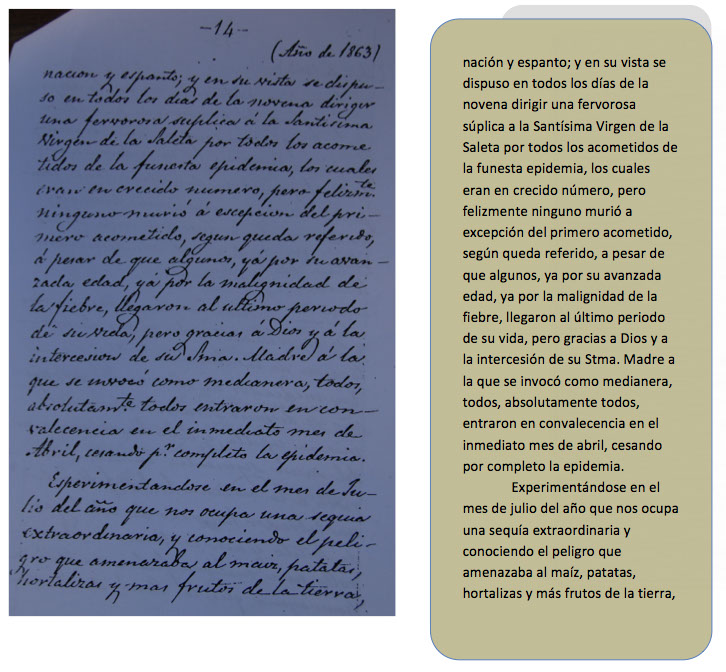 —14—
(Año de 1863)
nacion y espanto; y en su vista se dispu-
so en todos los dias de la novena dirigir
una fervorosa suplica á la Santisima
Virgen de la Saleta por todos los acome
tidos de la funesta epidemia, los cuales
eran en crecido numero, pero felizmte.
ninguno murió á escepcion del pri-
mero acometido, segun queda referido,
á pesar de que algunos, yá por su avan-
zada edad, yá por la malignidad de
la fiebre, llegaron al ultimo periodo
de su vida, pero gracias á Dios y á la
intercesion de su Sma. Madre á la
que se invocó como medianera, todos,
absolutamte. todos entraron en con-
valecencia en el inmediato mes de
Abril, cesando pr. completo la epidemia.
Esperimentandose en el mes de Ju-
lio del año que nos ocupa una sequia
extraordinaria, y conociendo el peli-
gro que amenazaba al maiz, patatas,
hortalizas y mas frutos de la tierra,
nación y espanto; y en su vista se
dispuso en todos los días de la
novena dirigir una fervorosa
súplica a la Santísima Virgen de la
Saleta por todos los acometidos de
la funesta epidemia, los cuales
eran en crecido número, pero
felizmente ninguno murió a
excepción del primero acometido,
según queda referido, a pesar de
que algunos, ya por su avanzada
edad, ya por la malignidad de la
fiebre, llegaron al último periodo
de su vida, pero gracias a Dios y a
la intercesión de su Stma. Madre a
la que se invocó como medianera,
todos, absolutamente todos,
entraron en convalecencia en el
inmediato mes de abril, cesando
por completo la epidemia.
Experimentándose en el
mes de julio del año que nos ocupa
una sequía extraordinaria y
conociendo el peligro que
amenazaba al maíz, patatas,
hortalizas y más frutos de la tierra,